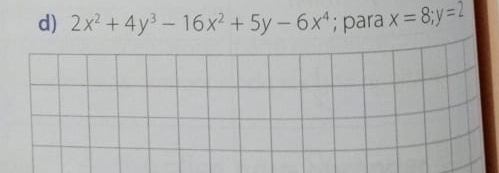 d) 2x² + 4y³ – 16x² + 5y – 6x⁴; para x = 8;y=2